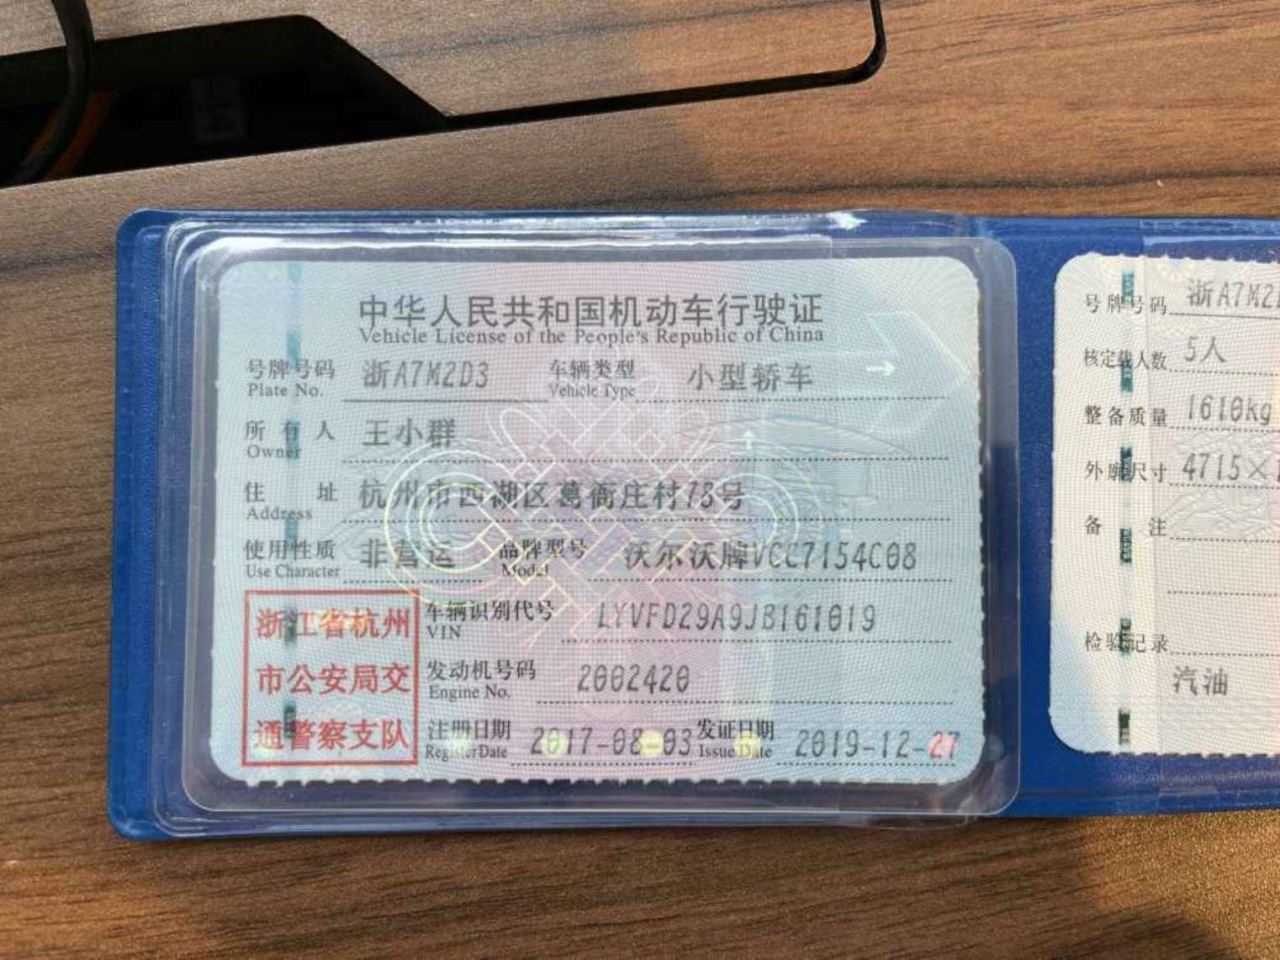 中华人民共和国机动车行驶证
Vehicle License of the People's Republic of China
号牌号码 浙A7M2D3 车辆类型 小型轿车
Plate No. Vehicle Type
所有人 王小群
Owner
住址 杭州市西湖区葛衙庄村78号
Address
使用性质 非营运 品牌型号 沃尔沃牌VCC7154C08
Use Character Model
浙江省杭州
市公安局交
通警察支队
车辆识别代号 LYVFD29A9JB161019
VIN
发动机号码 2002420
Engine No.
注册日期 2017-08-03 发证日期 2019-12-27
Register Date Issue Date
号牌号码 浙A7M2
核定载人数 5人
整备质量 1610kg
外廓尺寸 4715×
备注
检验记录
汽油